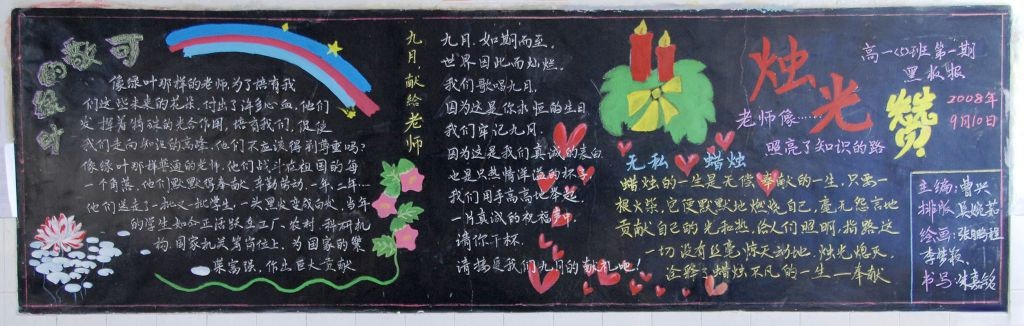 可敬的绿叶
像绿叶那样的老师,为了培育我
们这些未来的花朵,付出了许多心血,他们
发挥着特殊的光合作用,培育我们,促使
我们走向知识的高峰,他们不应该得到尊重吗?
像绿叶那样普通的老师,他们战斗在祖国的每
一个角落,他们默默得奉献,辛勤劳动,一年二年…
他们送走了一批又一批学生,一头黑发变成白发,当年
的学生如今正活跃在工厂、农村、科研机
构、国家机关等岗位上,为国家的繁
荣富强,作出巨大贡献
九月,献给老师
九月,如期而至,
世界因此而灿烂,
我们歌唱九月,
因为这是你永恒的生日
我们牢记九月,
因为这是我们真诚的表白
也是只热情洋溢的杯子
我们用手高高地举起,
一片真诚的祝福声中
请你干杯,
请接受我们九月的献礼吧!
烛光赞
老师像……
照亮了知识的路
高一班第一期
黑板报
2008年
9月10日
无私 蜡烛
蜡烛的一生是无偿奉献的一生,只需一
根火柴,它便默默地燃烧自己,毫无怨言地
贡献自己的光和热,给人们照明,指路,这
一切没有丝毫惊天动地,烛光熄灭,
诠释了蜡烛不凡的一生—奉献
主编:曹兴
排版:吴婉茹
绘画:张鹏程
李梦
书写:朱嘉铭